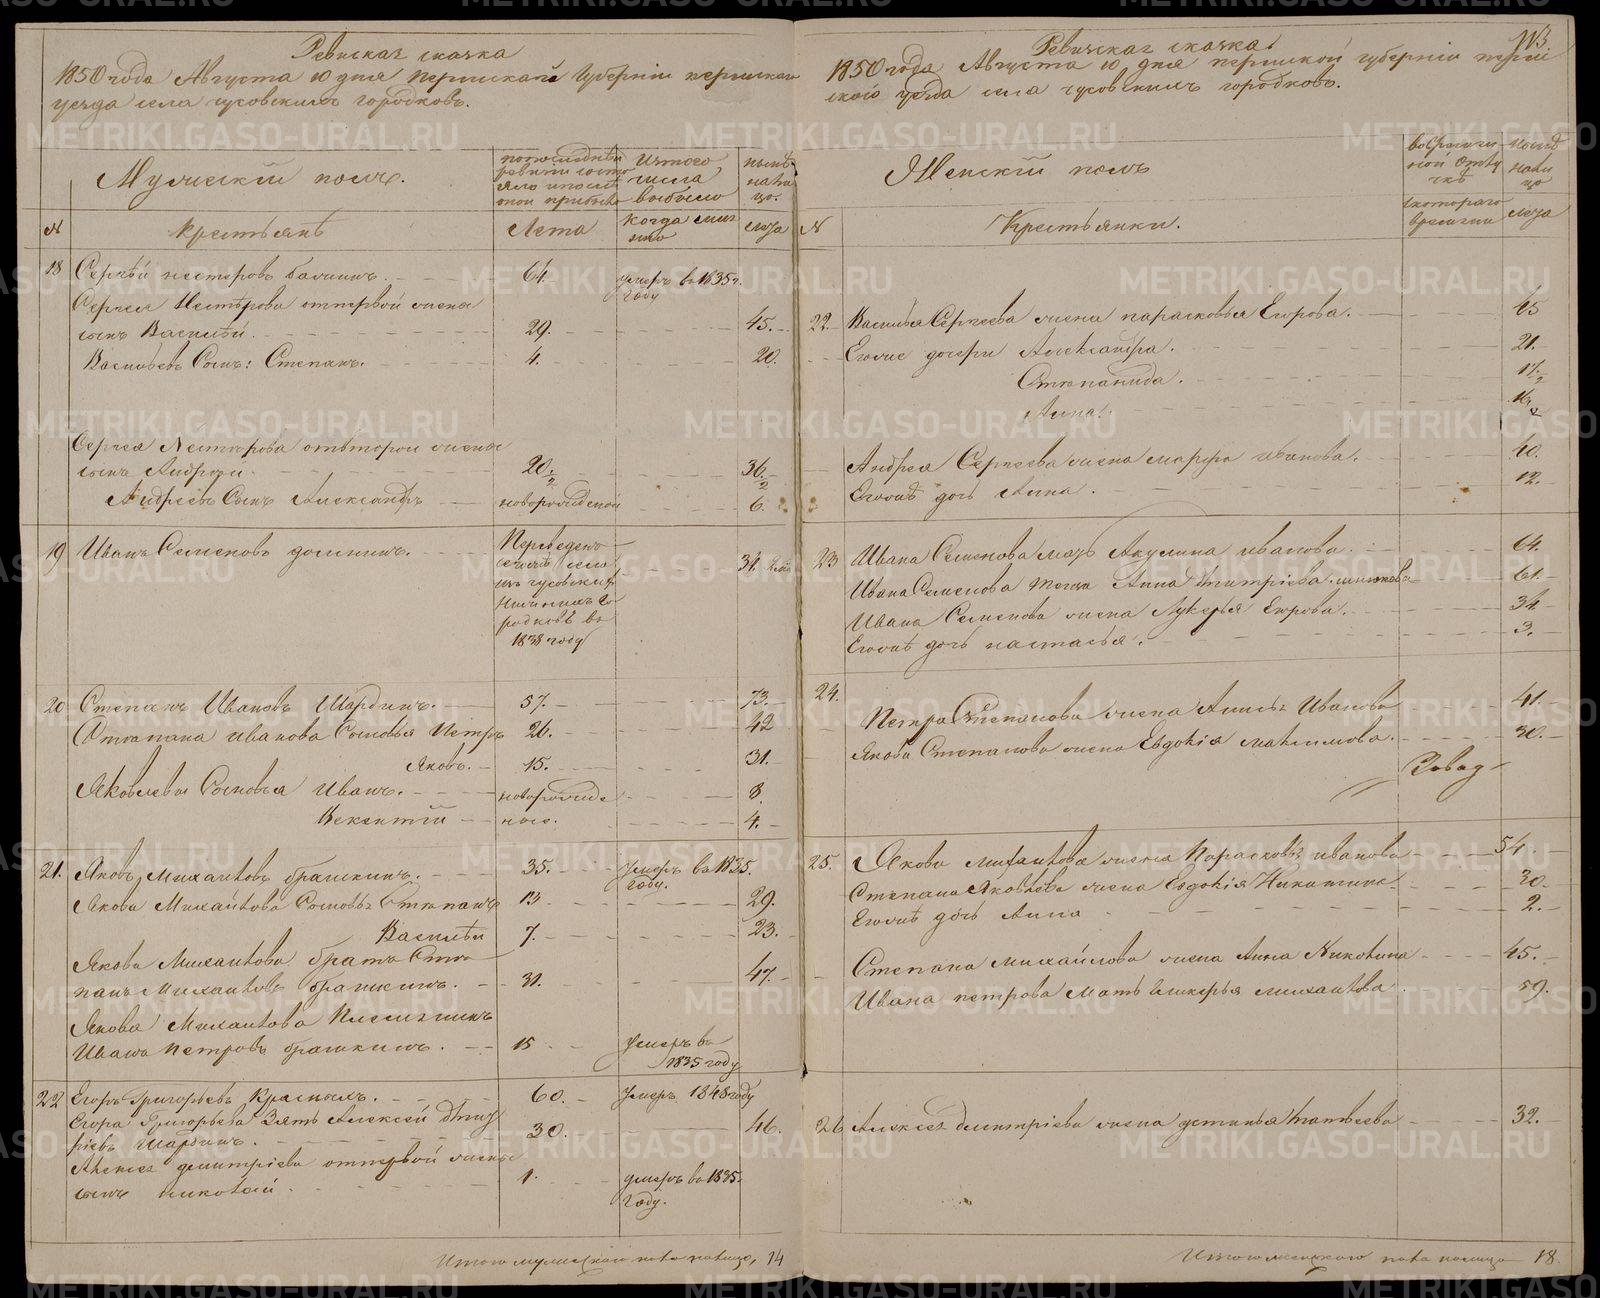 Ревизская сказка
1850 года Августа 10 дня Пермской Губернии пермскаго
уезда села чусовскихъ городковъ.
Мужескiй полъ.
по последней
ревизiи состо
яло и после
оной прибыло
Изъ того
числа
выбыло
ныне
на ли
цо.
N
Крестьянъ
Лета
когда имян
но
лета
18 Сергей нестеровъ балшинъ. 64. умеръ в 1835 г.
году
Сергея Нестерова отпервой жены
сынъ Василей. 29. 45.
Васильевъ Сынъ: Степанъ. 4. 20.
Сергея Нестерова отвторой жены
сынъ Андрей. 20 1/2 36 1/2
Андреевъ Сынъ Александръ новорожденой 6.
19 Иванъ Семеновъ доминъ. Переведенъ 34.
1838 году
20 Степанъ Ивановъ Шардинъ. 57. 73.
Степана иванова Сыновья Петръ 26. 42
Яковъ. 15. 31.
Яковлевы Сыновья Иванъ. новорожде 8.
Векентiй ные. 4.
21. Яковъ Михаиловъ брашкинъ. 35. умеръ в 1835.
году.
Якова Михайлова Сыновья Степанъ 13 29.
Василей 7. 23.
Якова Михаилова братъ Сте
панъ Михаиловъ брашкинъ. 31. 47.
Якова Михаилова Племянникъ
Иванъ петровъ брашкинъ. 15 Умеръ в
1835 году
22 Егоръ Григорьевъ Красныхъ. 60. Умеръ 1848 году
Егора Григорьева Зять Алексей дмит
рiевъ Шардинъ. 30. 46.
Алексея дмитрiева отпервой жены
сынъ николай. 1. умеръ в 1835
году.
Итого мужескаго пола налицо, 14
113.
Ревизская сказка
1850 года Августа 10 дня пермской губернiи перм
скаго уезда села чусовскихъ городковъ.
Женскiй полъ
во времен
ной отлу
чке
скотораго
времени
ныне
нали
цо
лета
N
Крестьянки.
22. Василья Сергеева жена парасковья Егорова. 45
Еговые дочери Александра. 21.
Степанида. 17 1/2
Анна. 16
Андрея Сергеева жена марфа иванова. 40.
Еговая дочь Анна. 12.
23 Ивана Семенова мать Акулина иванова. 64.
Ивана Семенова теща Анна дмитрiева 61.
Ивана Семенова жена Лукерья Егорова. 34
Еговая дочь настасья. 3.
24. Петра Степанова жена Анисья Иванова 41.
Якова Степанова жена Евдокiя максимова. 30.
25. Якова михаилова жена Парасковья иванова 54.
Степана Яковлева жена Евдокiя Никитина. 30.
Еговая дочь Анна 2.
Степана михайлова жена Анна Никовина 45.
Ивана петрова мать Гликерья михаилова 59.
26 Алексея дмитрiева жена устинья матвеева 32.
Итого женскаго пола налицо 18.
METRIKI.GASO-URAL.RU